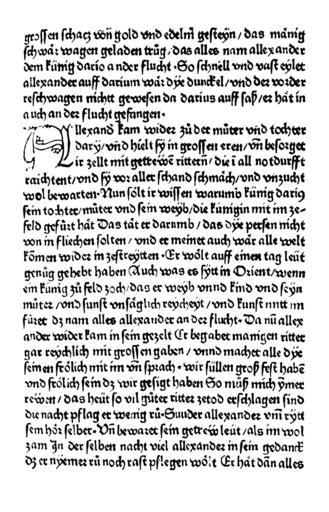 grossen schacz von gold vnd edelm gesteyn/das mänig
schwär wagen geladen trůg/das alles nam allexander
dem künig dario an der flucht·So schnell vnd vast eylet
allexander auff darium wär dye dunckel/vnd der vorder
reschwagen nicht gewesen da darius auff saß/er hät in
auch an der flucht gefangen·
Allexand kam wider zů der můter vnd tochter
dary/vnd hielt sy in grossen eren/vnd besorget
Ir zellt mit getrewen rittern/die i all notdurfft
raichtent/vnd sy vor aller schand schmäch/vnd vnzucht
wol bewarten·Nun sölt ir wissen warumb künig darius
sein tochter/můter vnd sein weyb/die künigin mit im ze-
feld gefürt hät Das tät er darumb/das dye persen nicht
von in fliechen solten/vnd er meinet auch wär alle welt
kömen wider in zestreytten·Er wölt auff einen tag leüt
genůg gehebt haben Auch was es sytt in Orient/wenn
ein künig zů feld zoch/das er weyb vnnd kind vnd seyn
můter/vnd sunst vnsäglich reycheyt/vnd kunst mitt im
füret dz nam alles allexander an der flucht·Da nů allex
ander wider kam in sein gezelt Er begabet manigen ritter
gar reychlich mit grossen gaben/vnnd machet alle dye
seinen frölich mit im vnd sprach·wir süllen groß fest haben
vnd frölich sein dz wir gesigt haben So můß mich ymer
rewen/das heüt so vil gůter ritter ze tod erschlagen sind
die nacht pflag er wenig rů·Sunder allexander vmb rytt
sein hör selber·Vnd bewaret sein getrew leüt/als im wol
zam In der selben nacht viel allexander in sein gedanck
dz er nyemer rů noch rast pflegen wölt Er hät dann alles